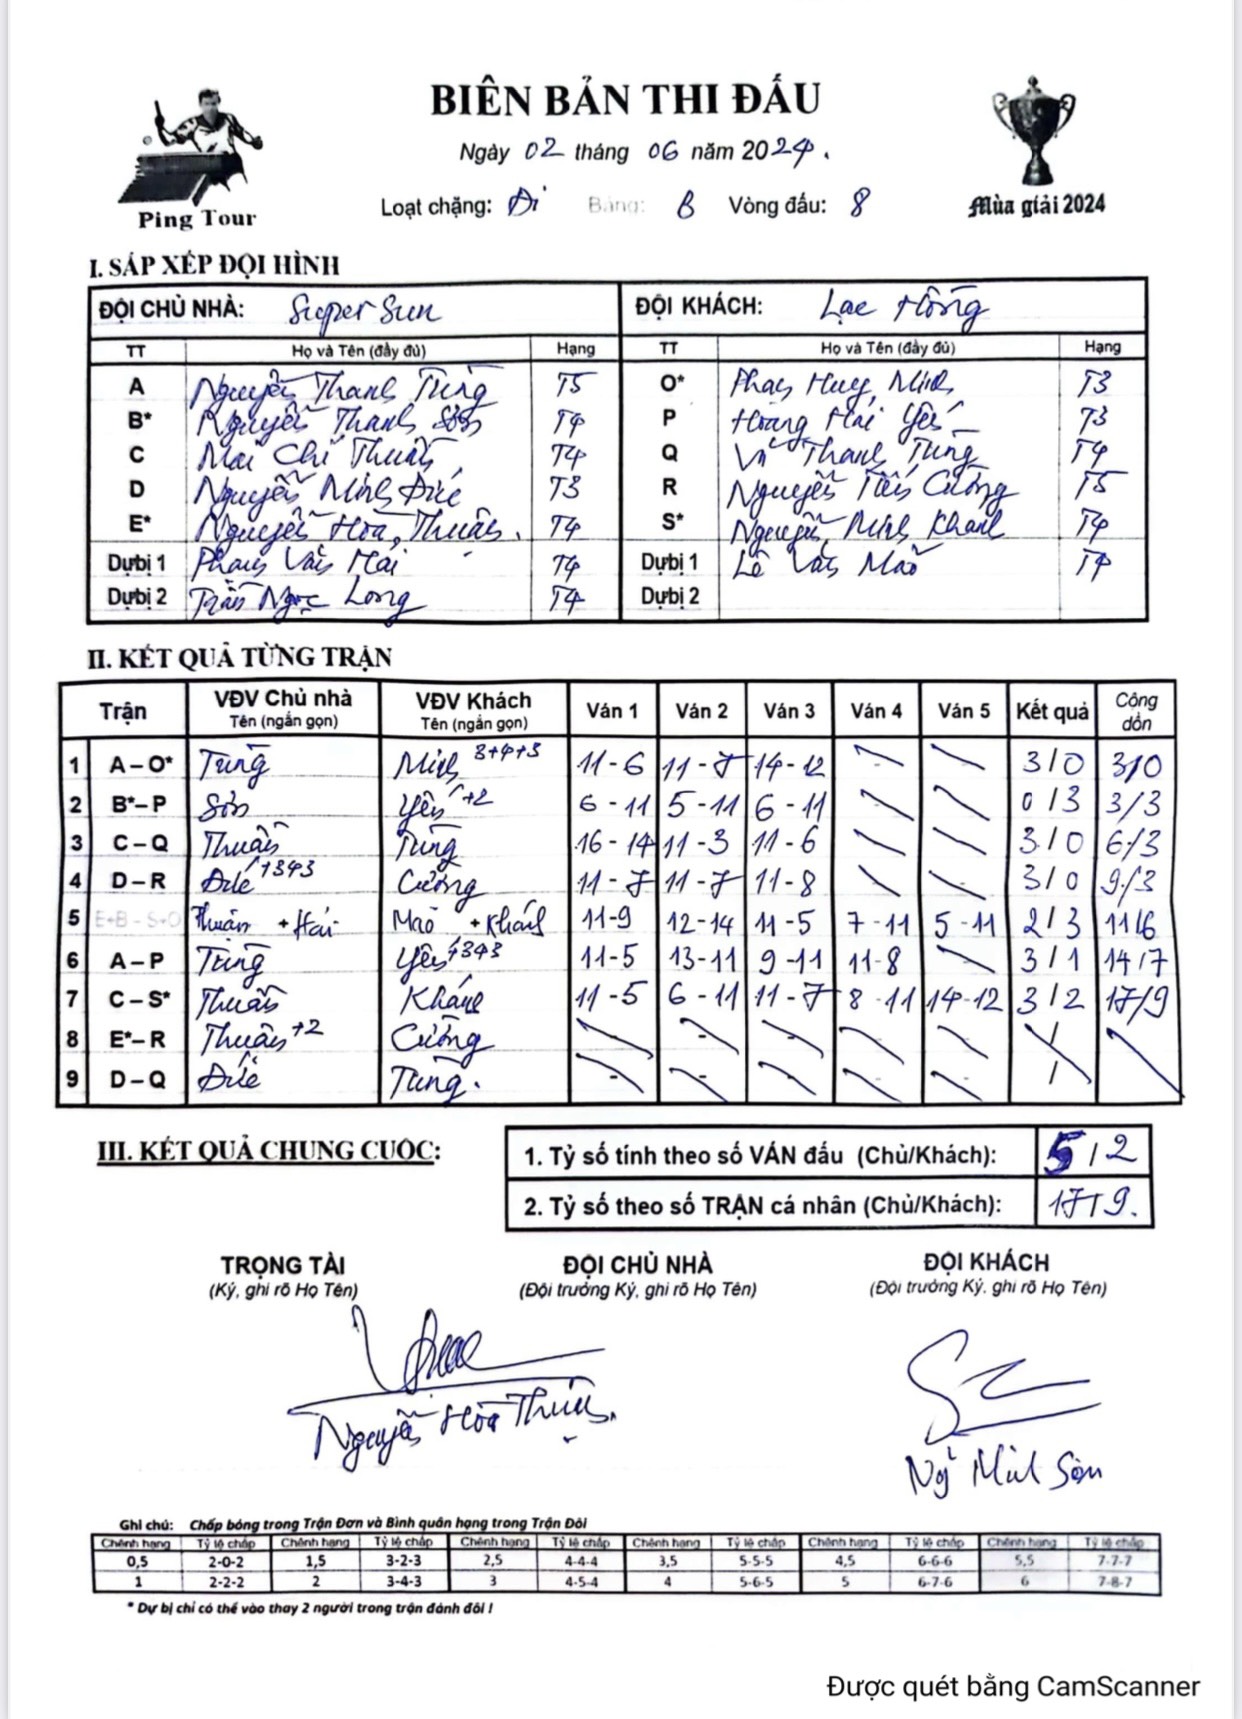 BIÊN BẢN THI ĐẤU
Ngày 02 tháng 06 năm 2024.
Loạt chặng: Đi Bảng: B Vòng đấu: 8
Ping Tour
Mùa giải 2024
I. SẮP XẾP ĐỘI HÌNH
ĐỘI CHỦ NHÀ: Super Sun ĐỘI KHÁCH: Lạc Hồng
TT Họ và Tên (đầy đủ) Hạng TT Họ và Tên (đầy đủ) Hạng
A Nguyễn Thanh Tùng T5 O* Phan Huy Minh T3
B* Nguyễn Thanh Sơn T4 P Hoàng Hải Yến T3
C Mai Chí Thuần T4 Q Vũ Thanh Tùng T4
D Nguyễn Minh Đức T3 R Nguyễn Tiến Cường T5
E* Nguyễn Hòa Thuận. T4 S* Nguyễn Minh Khánh T4
Dự bị 1 Phan Văn Hải T4 Dự bị 1 Lê Văn Mão T4
Dự bị 2 Trần Ngọc Long T4 Dự bị 2
II. KẾT QUẢ TỪNG TRẬN
Trận VĐV Chủ nhà Tên (ngắn gọn) VĐV Khách Tên (ngắn gọn) Ván 1 Ván 2 Ván 3 Ván 4 Ván 5 Kết quả Cộng dồn
1 A – O* Tùng Minh 3+4+3 11-6 11-7 14-12 - - 3/0 3/0
2 B* – P Sơn Yến 1+2 6-11 5-11 6-11 - - 0/3 3/3
3 C – Q Thuần Tùng 16-14 11-3 11-6 - - 3/0 6/3
4 D – R Đức 1343 Cường 11-7 11-7 11-8 - - 3/0 9/3
5 E+B - S+O Thuận + Hải Mão + Khánh 11-9 12-14 11-5 7-11 5-11 2/3 11/6
6 A – P Tùng Yến 1343 11-5 13-11 9-11 11-8 - 3/1 14/7
7 C – S* Thuần Khánh 11-5 6-11 11-7 8-11 14-12 3/2 17/9
8 E* – R Thuận +2 Cường - - - - - /
9 D – Q Đức Tùng. - - - - - /
III. KẾT QUẢ CHUNG CUỘC:
1. Tỷ số tính theo số VÁN đấu (Chủ/Khách): 5/2
2. Tỷ số theo số TRẬN cá nhân (Chủ/Khách): 17/9.
TRỌNG TÀI ĐỘI CHỦ NHÀ ĐỘI KHÁCH
(Ký, ghi rõ Họ Tên) (Đội trưởng Ký, ghi rõ Họ Tên) (Đội trưởng Ký, ghi rõ Họ Tên)
Nguyễn Hòa Thuận.
Ng Minh Sơn
Ghi chú: Chấp bóng trong Trận Đơn và Bình quân hạng trong Trận Đôi
Chênh hạng Tỷ lệ chấp Chênh hạng Tỷ lệ chấp Chênh hạng Tỷ lệ chấp Chênh hạng Tỷ lệ chấp Chênh hạng Tỷ lệ chấp Chênh hạng Tỷ lệ chấp
0,5 2-0-2 1,5 3-2-3 2,5 4-4-4 3,5 5-5-5 4,5 6-6-6 5,5 7-7-7
1 2-2-2 2 3-4-3 3 4-5-4 4 5-6-5 5 6-7-6 6 7-8-7
* Dự bị chỉ có thể vào thay 2 người trong trận đánh đôi !
Được quét bằng CamScanner